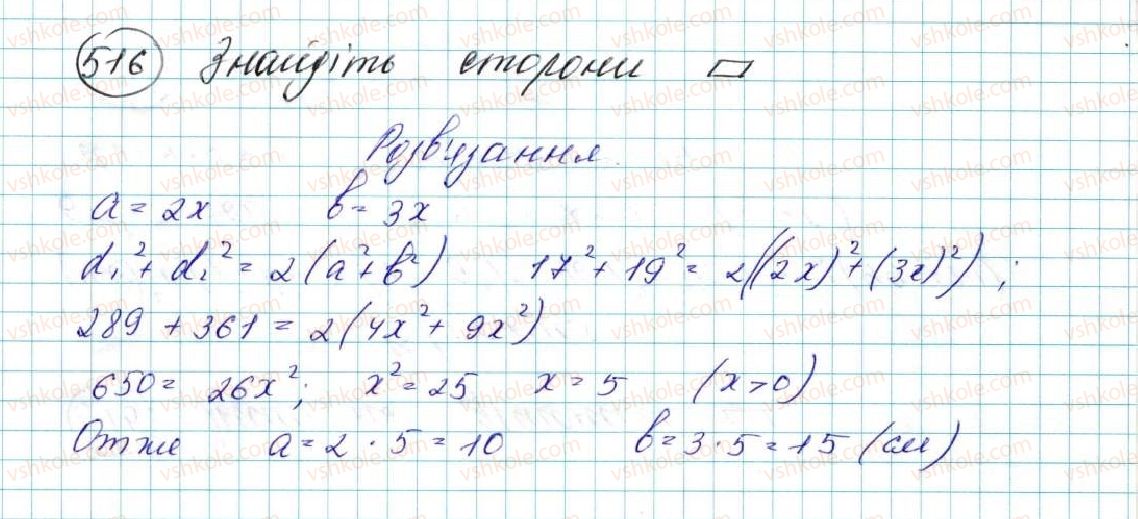 516 Знайдіть сторони ▱
Розв'язання
a = 2x b = 3x
d₁² + d₂² = 2(a² + b²) 17² + 19² = 2((2x)² + (3x)²) ;
289 + 361 = 2(4x² + 9x²)
650 = 26x²; x² = 25 x = 5 (x > 0)
Отже a = 2 · 5 = 10 b = 3 · 5 = 15 (см)
vshkole.com